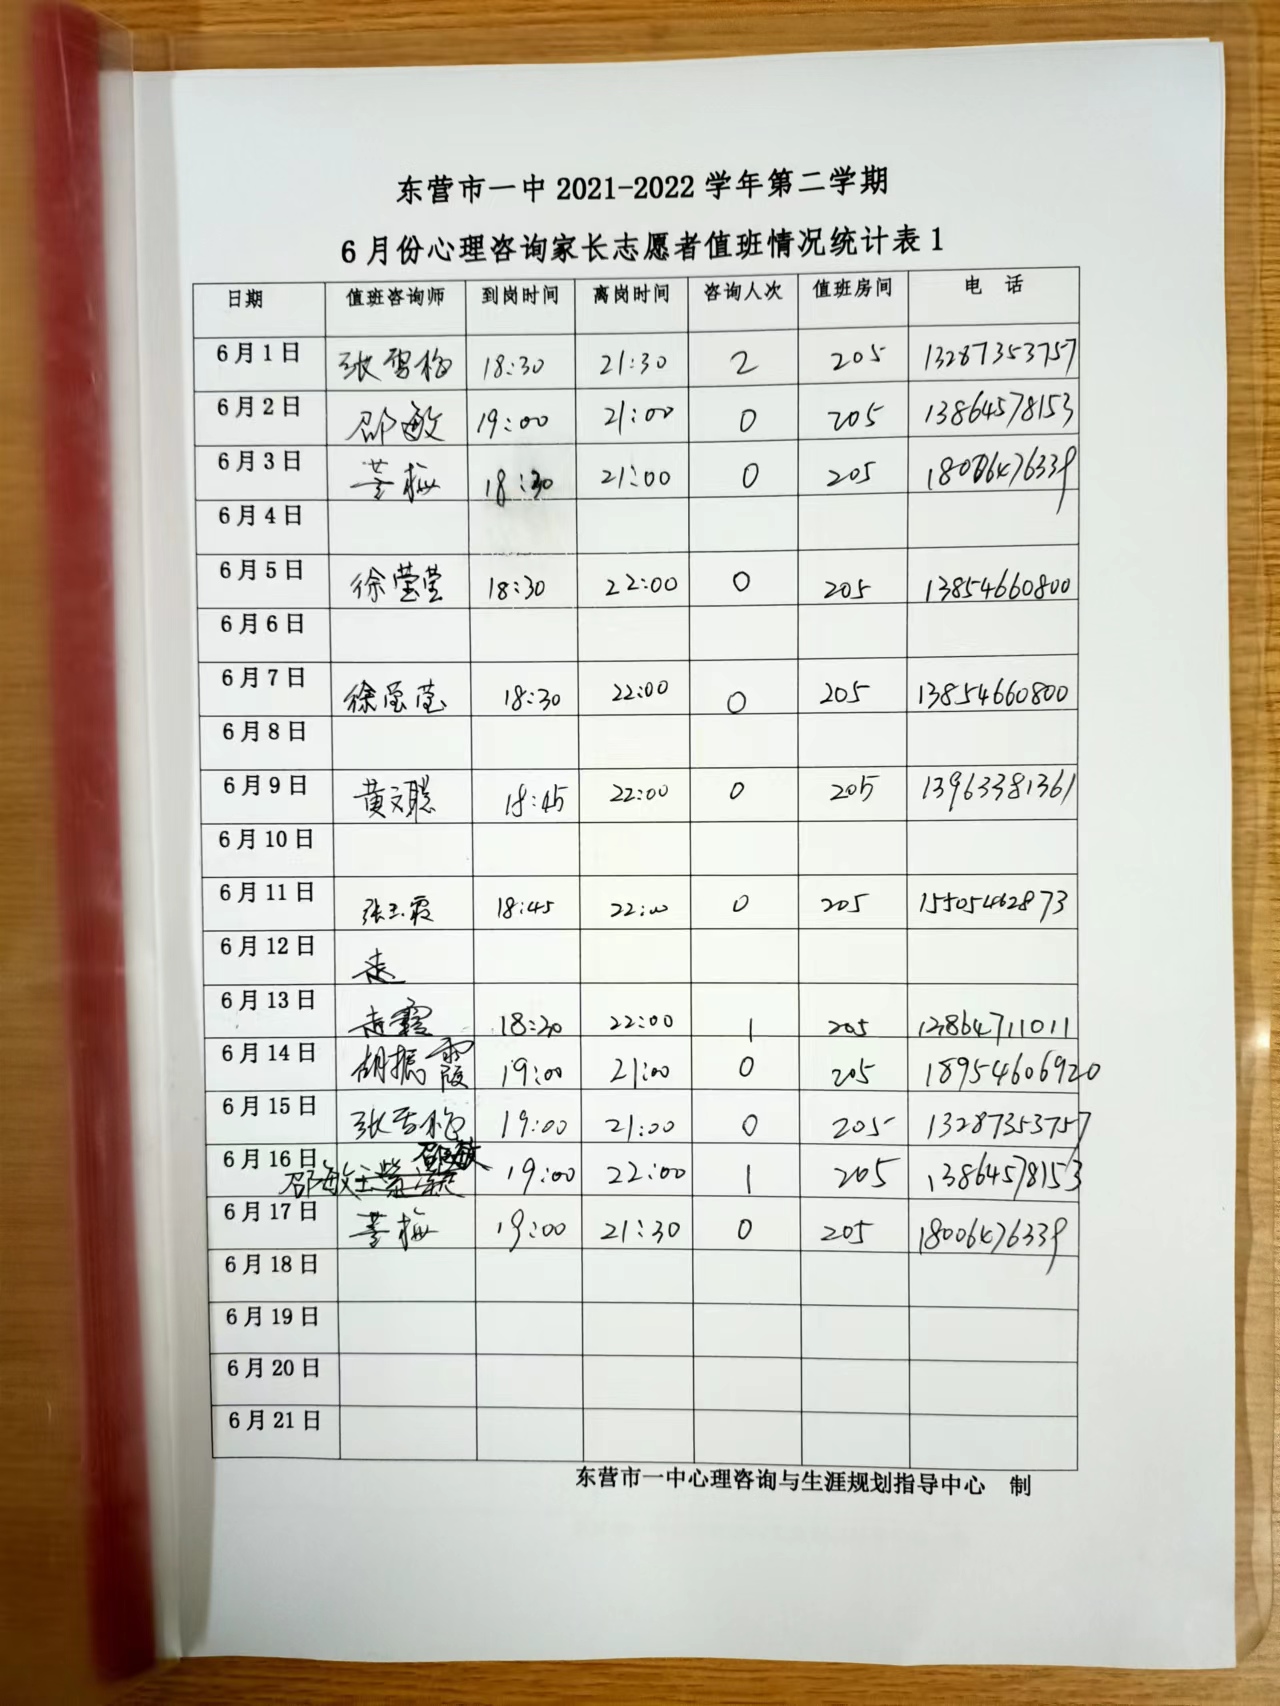 东营市一中 2021-2022 学年第二学期
6 月份心理咨询家长志愿者值班情况统计表 1
日期 值班咨询师 到岗时间 离岗时间 咨询人次 值班房间 电 话
6 月 1 日 张雪梅 18:30 21:30 2 205 13287353757
6 月 2 日 邵敏 19:00 21:00 0 205 13864578153
6 月 3 日 董梅 18:30 21:00 0 205 18006476339
6 月 4 日
6 月 5 日 徐莹莹 18:30 22:00 0 205 13854660800
6 月 6 日
6 月 7 日 徐莹莹 18:30 22:00 0 205 13854660800
6 月 8 日
6 月 9 日 黄文聪 18:45 22:00 0 205 13963381361
6 月 10 日
6 月 11 日 张玉霞 18:45 22:00 0 205 15505462873
6 月 12 日 赵
6 月 13 日 赵霞 18:30 22:00 1 205 13864711011
6 月 14 日 胡振霞 19:00 21:00 0 205 18954606920
6 月 15 日 张雪梅 19:00 21:00 0 205 13287353757
6 月 16 日 邵敏 邵敏 19:00 22:00 1 205 13864578153
6 月 17 日 董梅 19:00 21:30 0 205 18006476339
6 月 18 日
6 月 19 日
6 月 20 日
6 月 21 日
东营市一中心理咨询与生涯规划指导中心 制